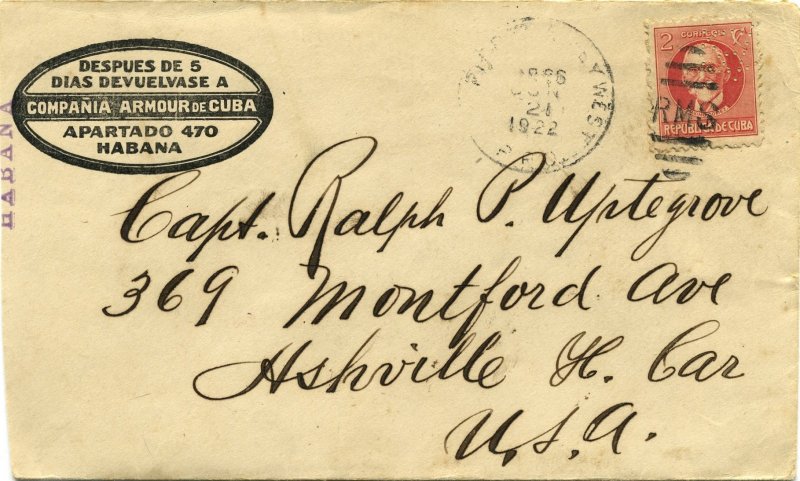 DESPUES DE 5
DIAS DEVUELVASE A
COMPAÑIA ARMOUR DE CUBA
APARTADO 470
HABANA
HABANA
WEST
21
1922
2
RMS
REPUBLICA DE CUBA
Capt. Ralph P. Uptegrove
369 Montford Ave
Ashville N. Car
U.S.A.